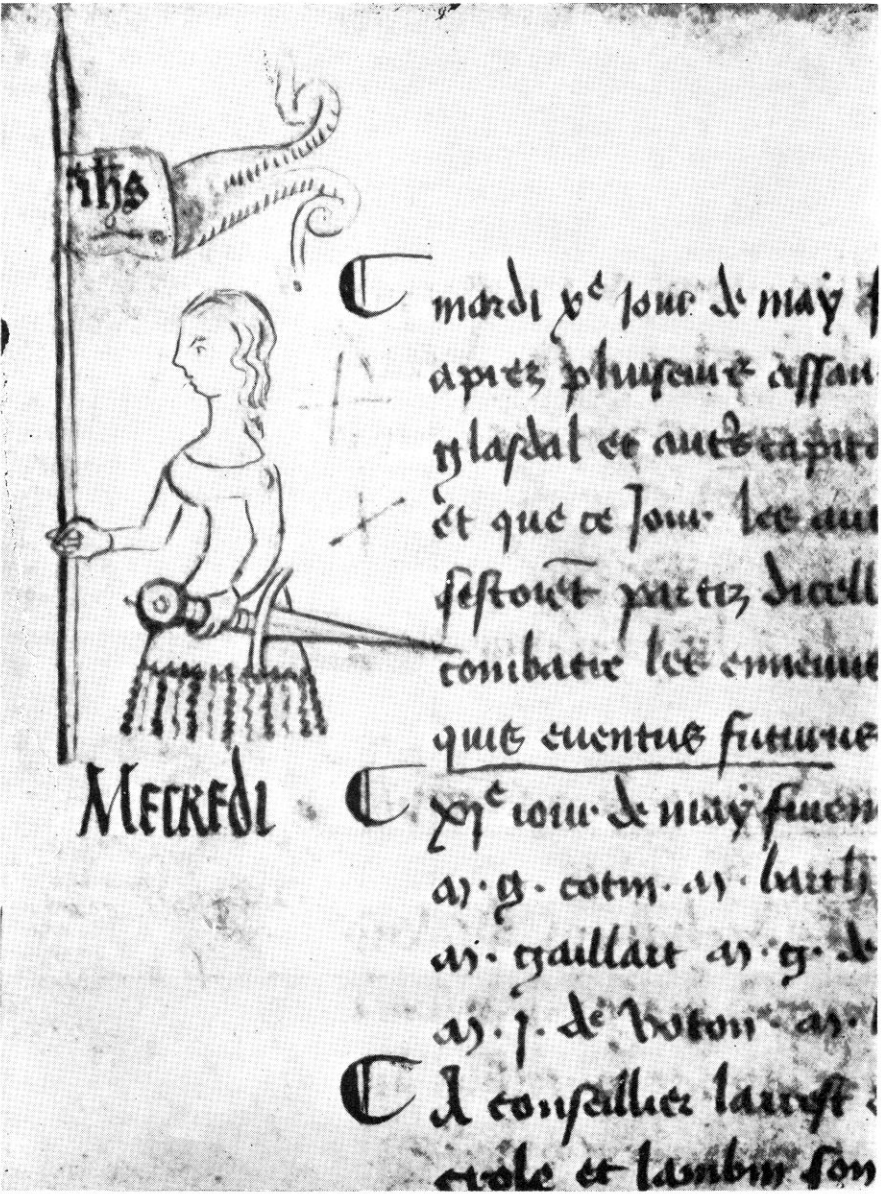 ihs
mardi xᵉ jour de may
aprez pluseurs assau
glasdal et autˢ capit
et que ce Jour les
sestoiēt partiz dicell
combatre les ennemis
quis eventus futurus
MECREdI
xjᵉ jour de may
m. g. cotin. m. barth
m. gaillart m. g. de
m. j. de m.
A conseillier larrest
et lambin son